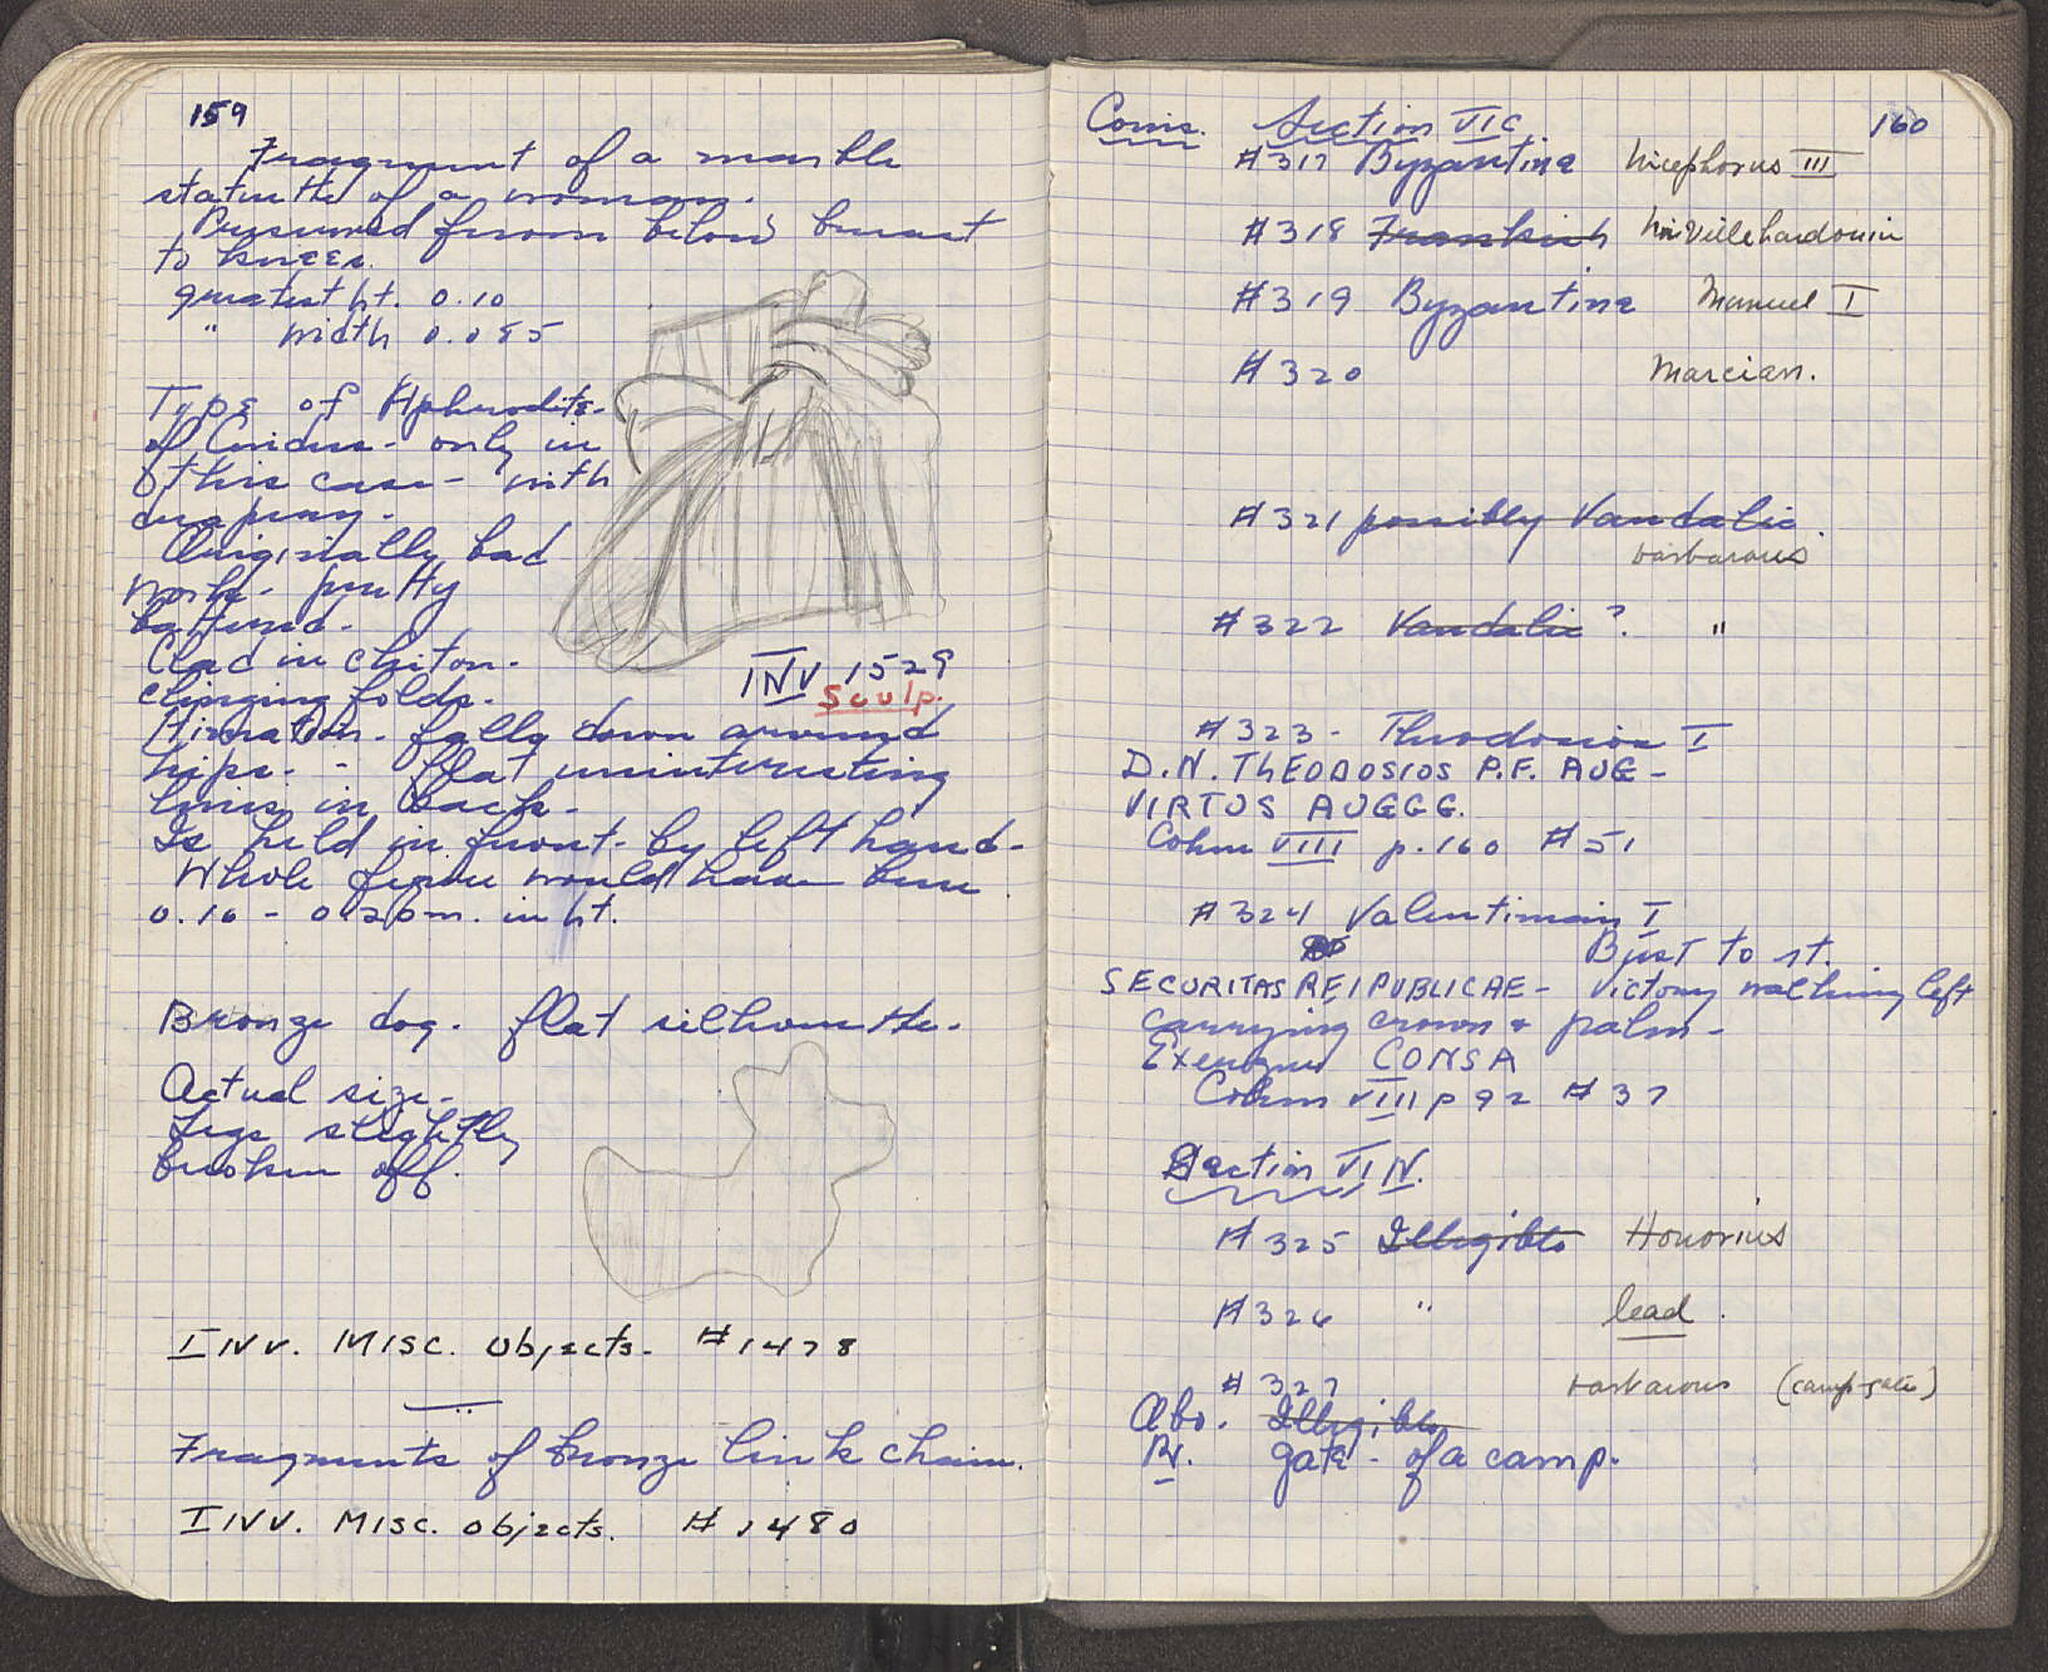 159
Fragment of a marble
statuette of a woman.
Preserved from below breast
to knees.
greatest ht. 0.10
" width 0.085
Type of Aphrodite
of Cnidus - only in
this case - with
drapery.
Originally bad
work - pretty
battered.
Clad in chiton -
clinging folds.
INV 1529
Sculp.
Himation - falls down around
hips - - flat uninteresting
lines in back.
Is held in front - by left hand -
Whole figure would have been
0.16 - 0.20 m. in ht.
Bronze dog. flat silhouette.
Actual size -
Legs slightly
broken off.
INV. MISC. Objects - #1478
Fragments of bronze link chain.
INV. MISC. Objects. #1480
160
Coins. Section VIC
#317 Byzantine Nicephorus III
#318 Frankish Villehardouin
#319 Byzantine Manuel I
#320 Marcian.
#321 possibly Vandalic.
barbarous
#322 Vandalic ? "
#323 - Theodosius I
D.N. THEODOSIOS P.F. AUG -
VIRTUS AUGGG.
Cohen VIII p. 160 #51
#324 Valentinian I
Bust to rt.
SECURITAS REIPUBLICAE - Victory walking left
carrying crown & palm -
Exergue CONSA
Cohen VIII p 92 #37
Section VI N.
#325 Illegible Honorius
#326 " lead.
#327 barbarous (camp-gate)
Obv. Illegible
Rv. gate - of a camp.